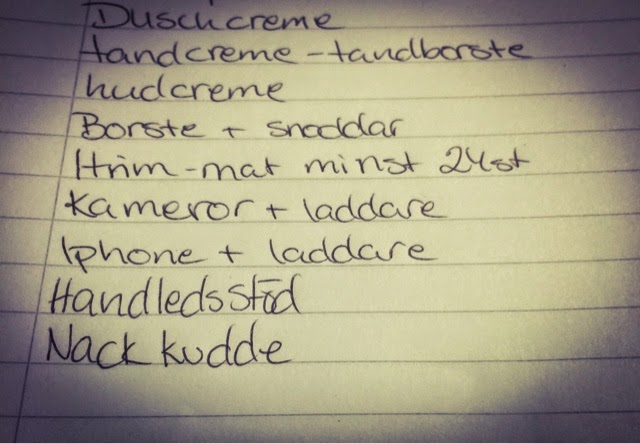 Duschcreme
tandcreme - tandborste
hudcreme
Borste + snoddar
Itrim - mat minst 24st
Kameror + laddare
Iphone + laddare
Handledsstöd
Nackkudde